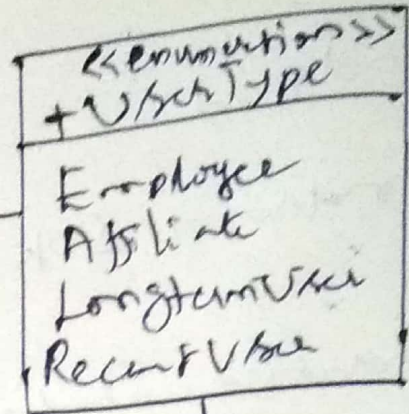 <<enumeration>>
+UserType
Employee
Affiliate
LongtermUser
RecentUser